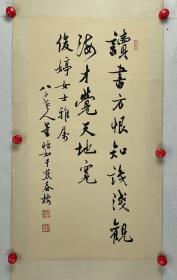 讀書方恨知識淺觀
海才覺天地寬
俊婷女士雅屬
八十人董怡如于燕春樓